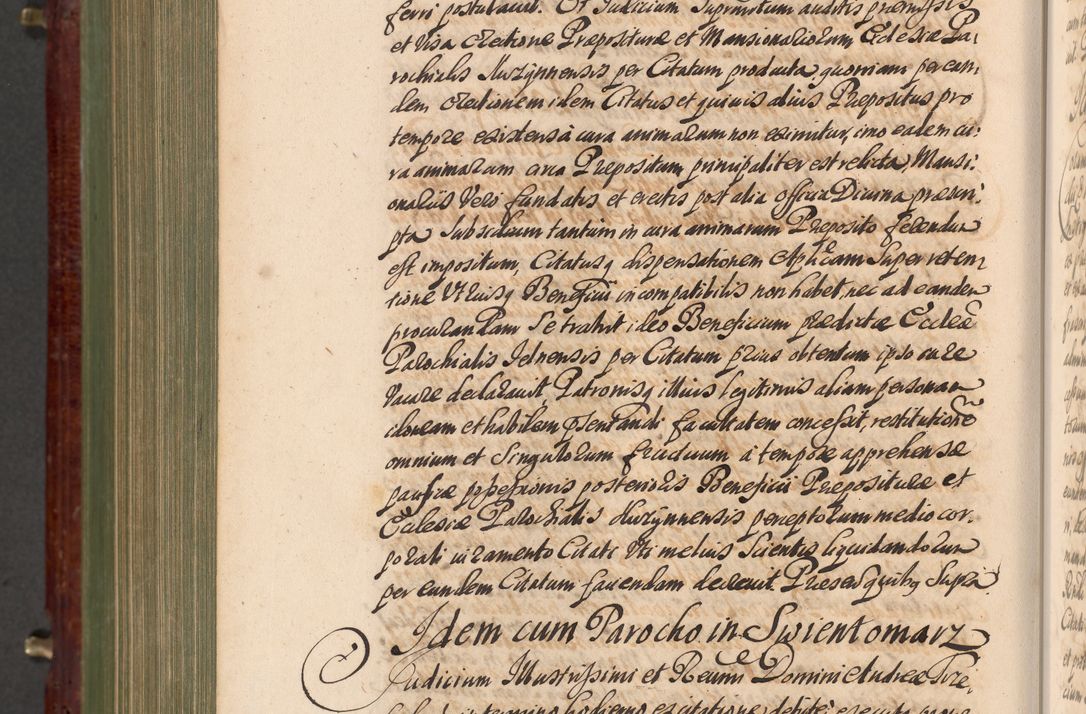 ferri postulavit. Et Judicium Supranotum auditis præmissis
et visa Erectione Præposituræ et Mansionariorum Ecclesiæ Pa-
rochialis Muzÿnnensis per Citatum producta, quoniam per ean-
dem erectionem idem Citatus et quivis alius Præpositus pro
tempore existens à cura animarum non eximitur, imo eadem cu-
ra animarum circa Præpositum principaliter est relicta, Mansi-
onariis Vero fundatis et erectis post alia officia Divina præscri-
pta Subsidium tantum in cura animarum Præposito ferendum
est impositum, Citatusq dispensationem Aplicam Super reten-
tione Utriusq Beneficii incompatibilis non habet, nec ad eandem
procurandam Se trahit; ideo Beneficium prædictæ Eccleæ
Parochialis Jelnensis per Citatum prius obtentum ipso jure
Vacare declaravit, Patronisq illius legitimis aliam personam
idoneam et habilem psentandi facultatem concessit, restitutione
omnium et Singulorum fructuum à tempore apprehensæ
possessionis posterioris Beneficii Præposituræ et
Ecclesiæ Parochialis Muzÿnnensis perceptorum medio cor-
porali juramento Citati Uti melius Scientis liquidandorum
per eundem Citatum favendam decrevit. Præsen quibq Supra
Idem cum Parocho in Swientomarz
Judicium Illustrissimi et Reverendissimi Domini Andreæ Trze-
in termino hodierno ex citatione